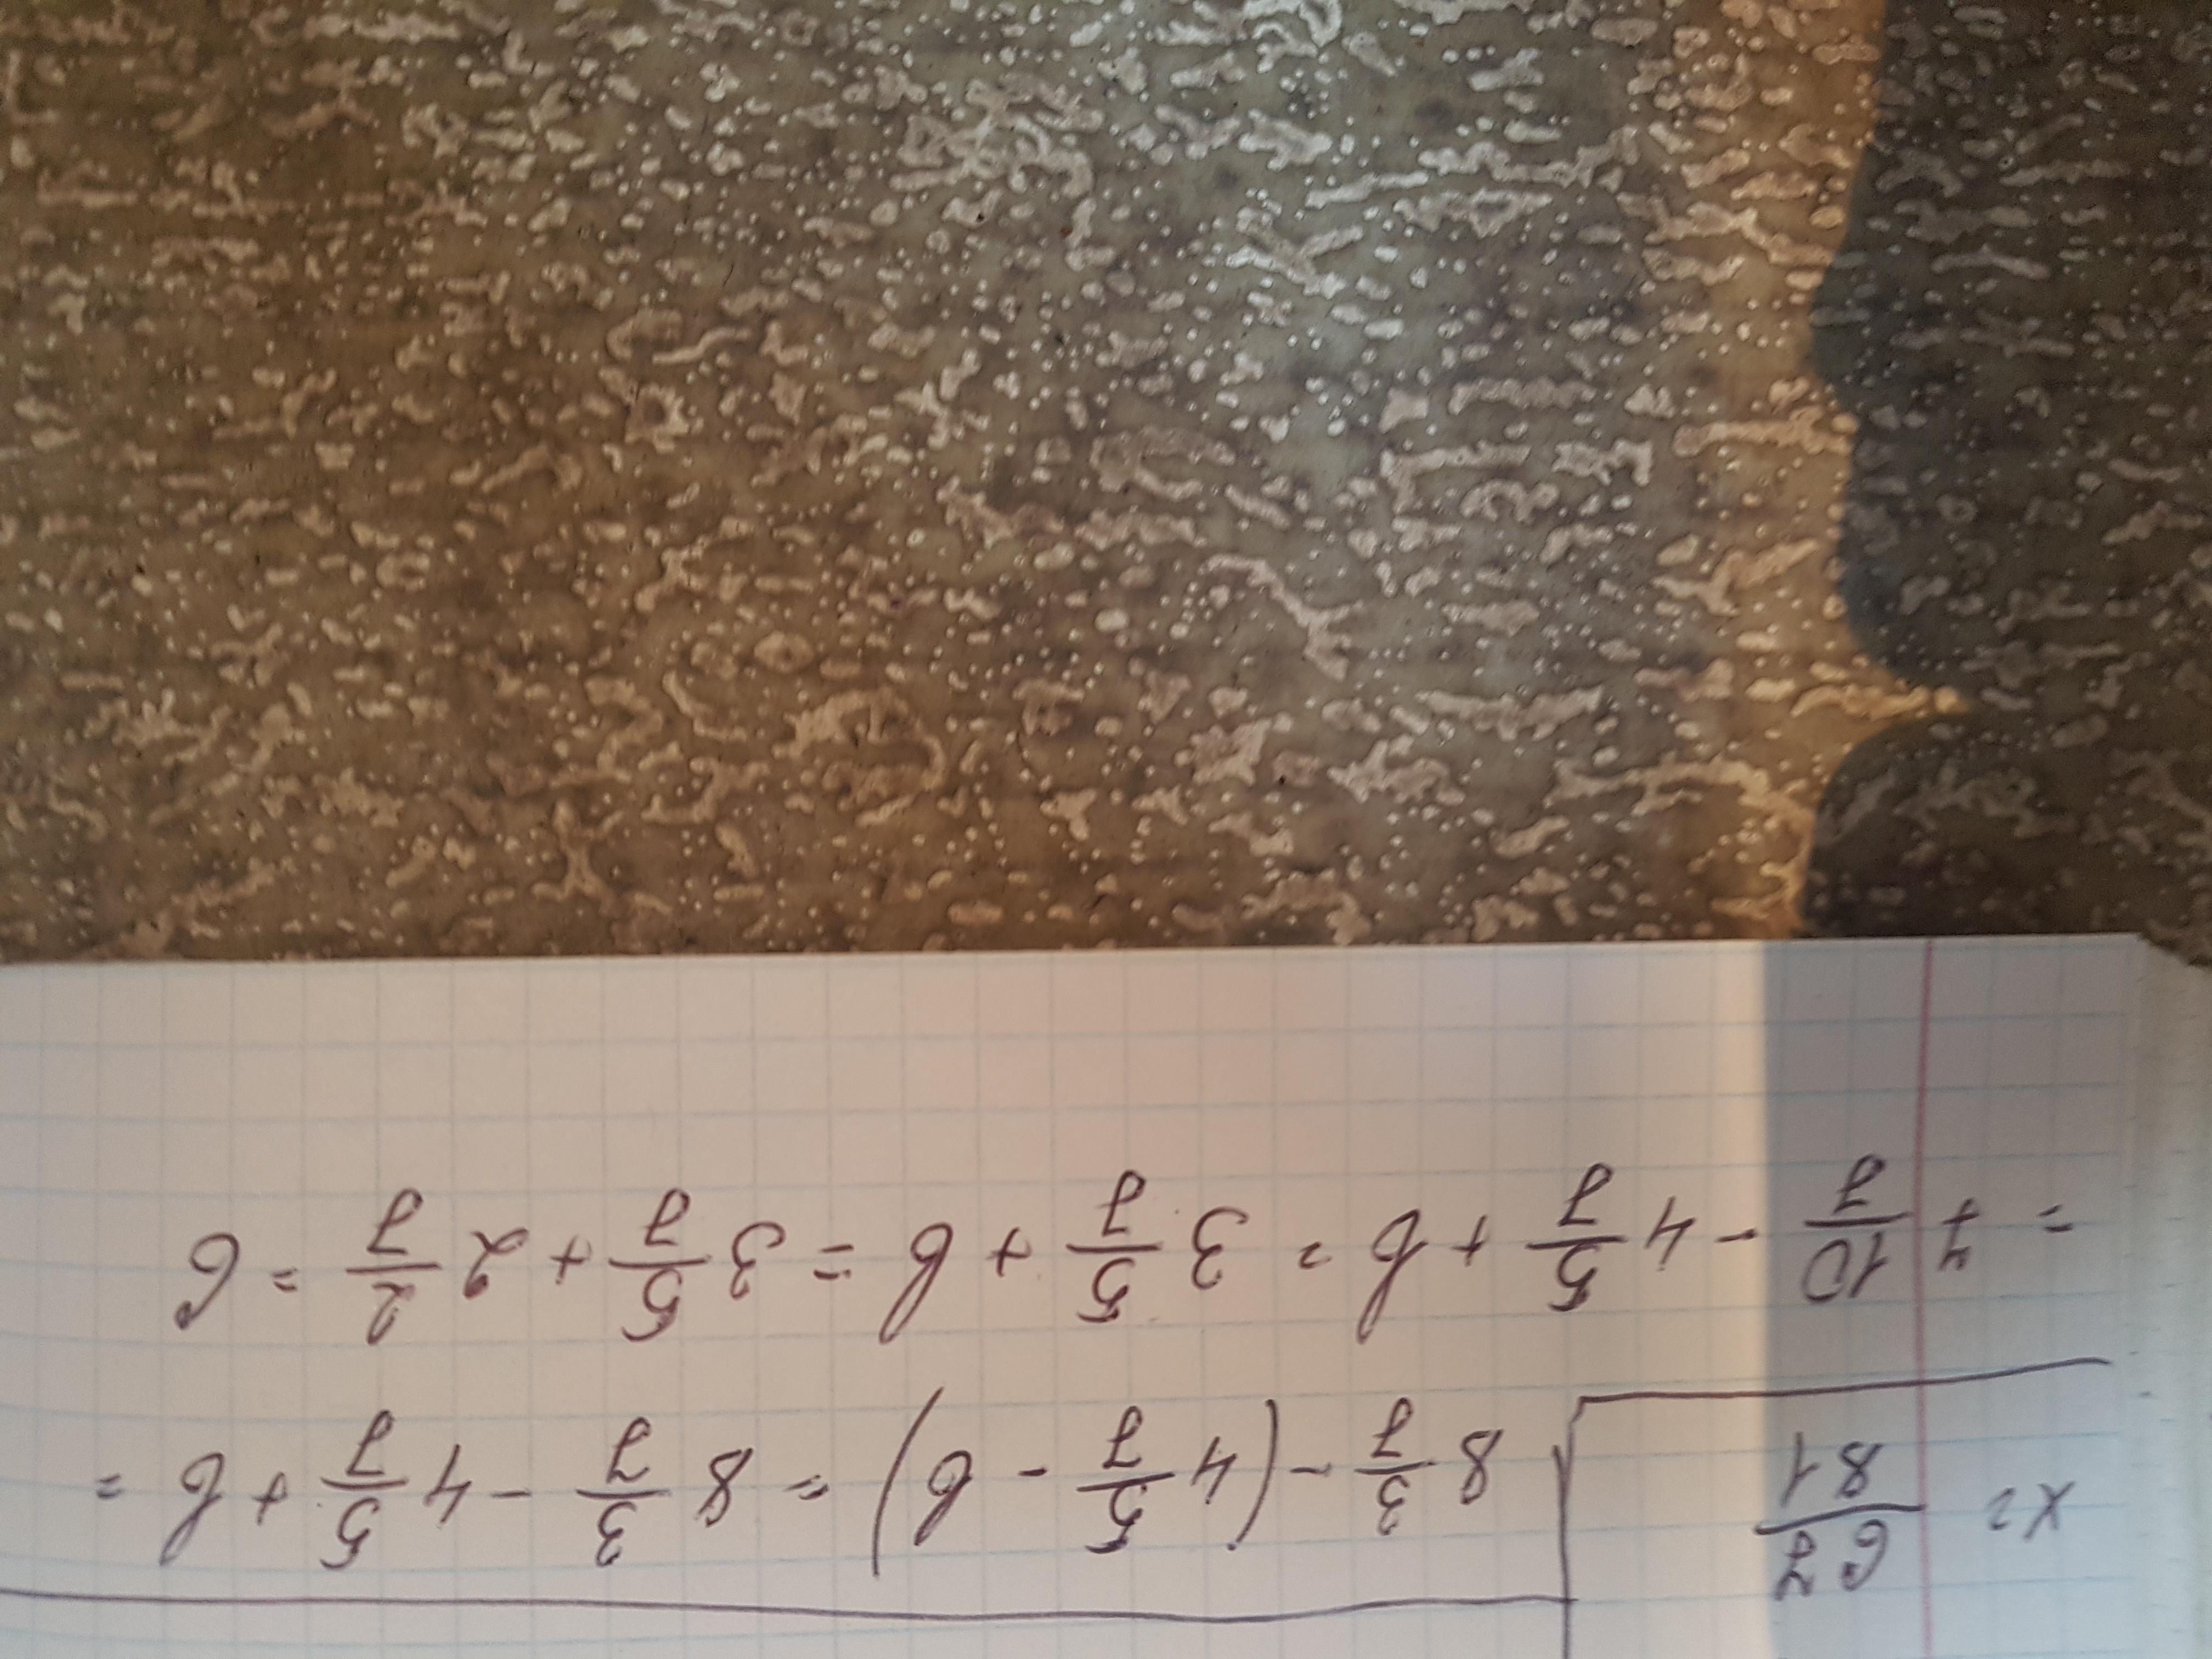 x = 62/81
8 3/7 - (4 5/7 - b) = 8 3/7 - 4 5/7 + b =
= 7 10/7 - 4 5/7 + b = 3 5/7 + b = 3 5/7 + 2 2/7 = 6